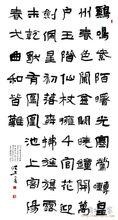 鷄鳴紫陌曙光寒鶯囀皇
州春色闌金闕曉鐘開萬
户玉階仙仗擁千官花迎
劍佩星初落柳拂旌旗露
未乾獨有鳳凰池上客陽
春一曲和皆難